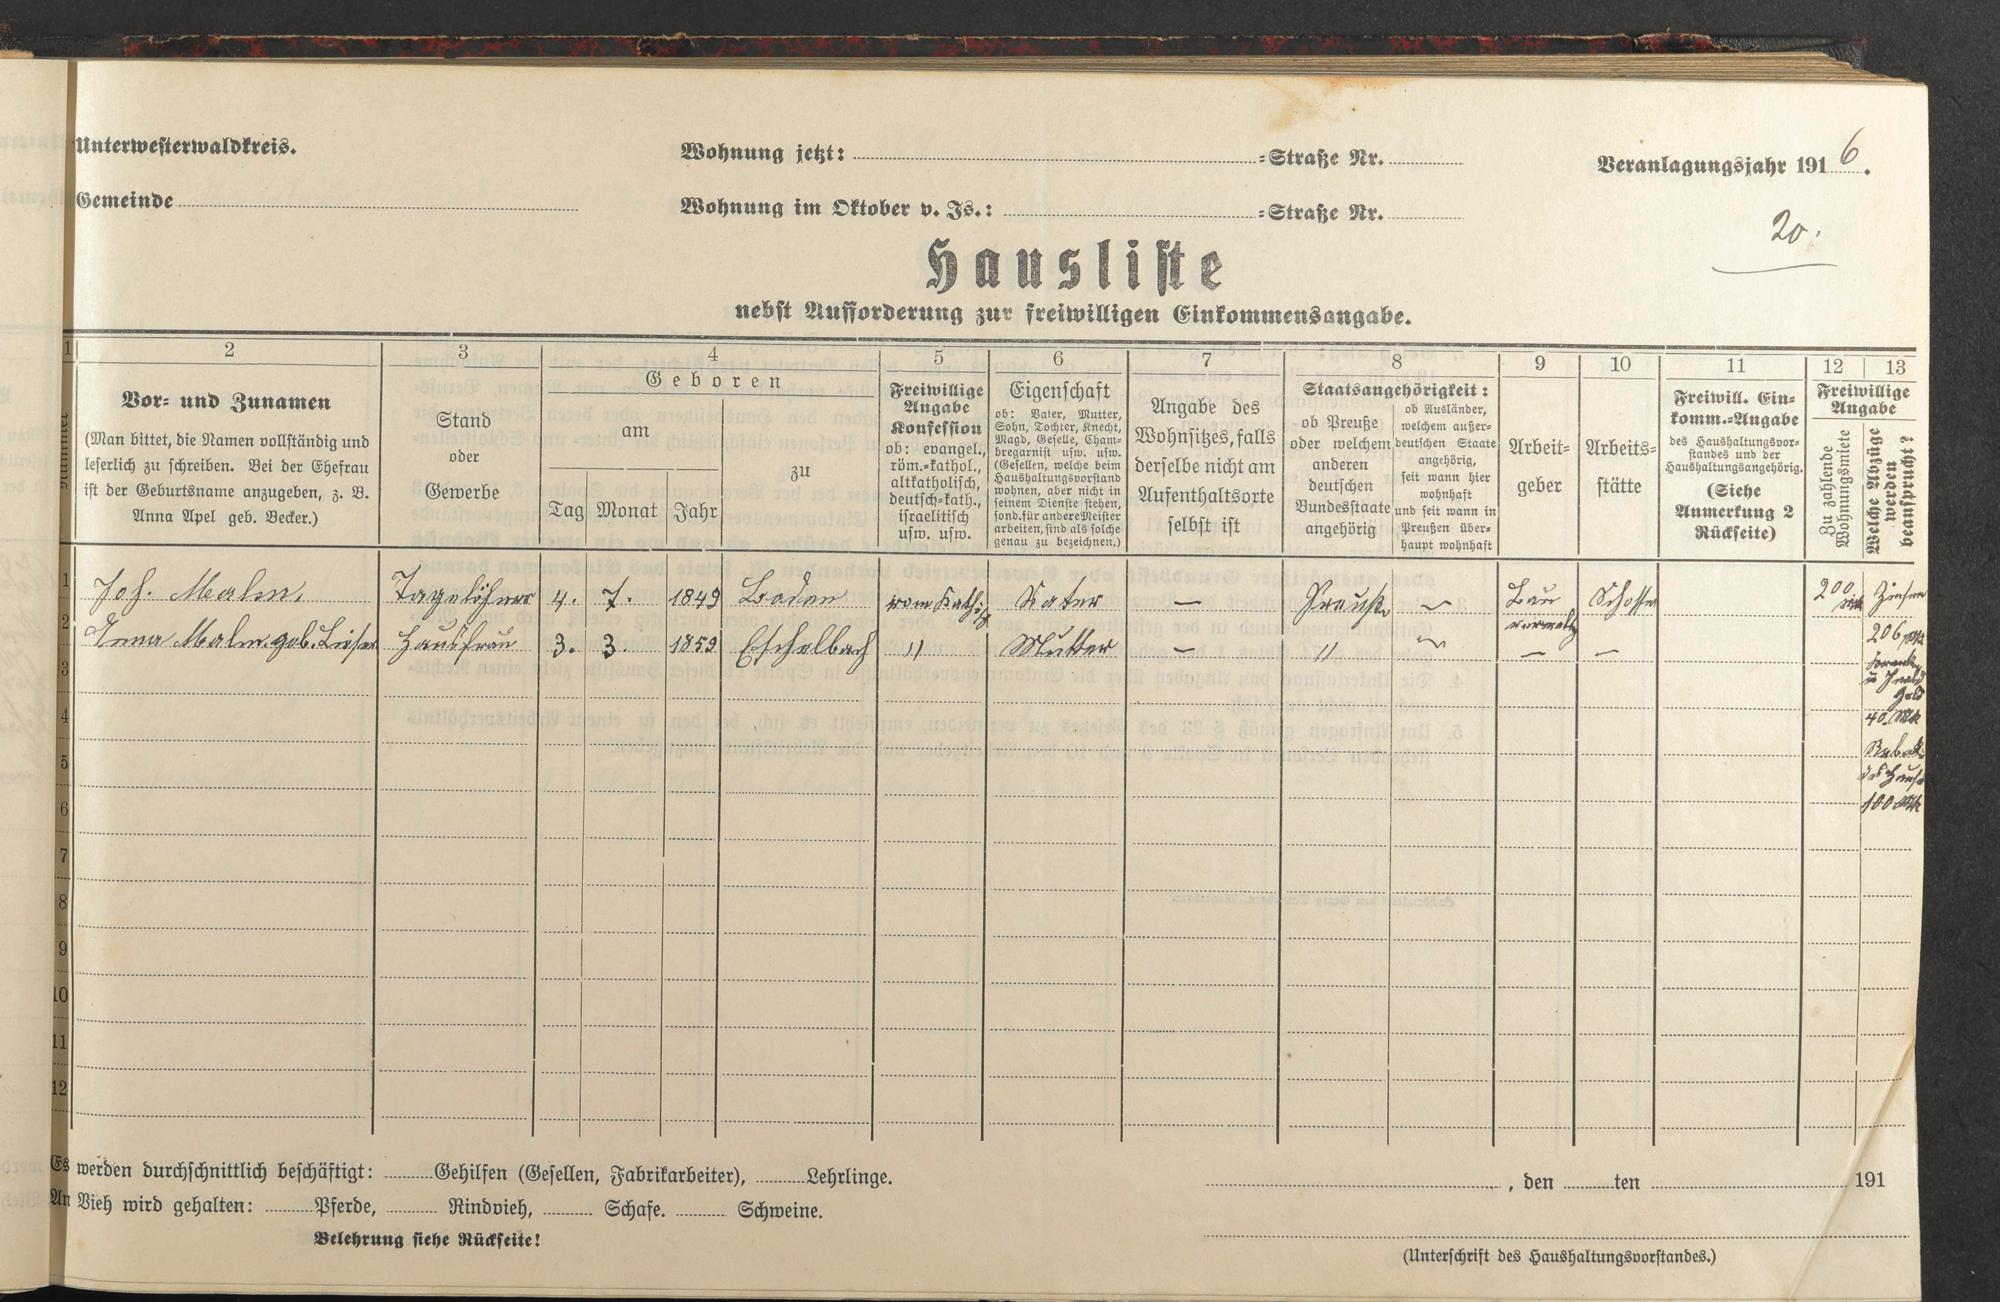 Unterwesterwaldkreis.
Wohnung jetzt: =Straße Nr.
Veranlagungsjahr 1916.
Gemeinde
Wohnung im Oktober v. Js.: =Straße Nr.
20.
Hausliste
nebst Aufforderung zur freiwilligen Einkommensangabe.
1 2 3 4 5 6 7 8 9 10 11 12 13
Nummer
Vor= und Zunamen
(Man bittet, die Namen vollständig und
leserlich zu schreiben. Bei der Ehefrau
ist der Geburtsname anzugeben, z. B.
Anna Apel geb. Becker.)
Stand
oder
Gewerbe
Geboren
am
Tag Monat Jahr
zu
Freiwillige
Angabe
Konfession
ob: evangel.,
röm.=kathol.,
altkatholisch,
deutsch=kath.,
israelitisch
usw. usw.
Eigenschaft
ob: Vater, Mutter,
Sohn, Tochter, Knecht,
Magd, Geselle, Cham=
bregarnist usw. usw.
(Gesellen, welche beim
Haushaltungsvorstand
wohnen, aber nicht in
seinem Dienste stehen,
sond. für andere Meister
arbeiten, sind als solche
genau zu bezeichnen.)
Angabe des
Wohnsitzes, falls
derselbe nicht am
Aufenthaltsorte
selbst ist
Staatsangehörigkeit:
ob Preuße
oder welchem
anderen
deutschen
Bundesstaate
angehörig
ob Ausländer,
welchem außer=
deutschen Staate
angehörig,
seit wann hier
wohnhaft
und seit wann in
Preußen über=
haupt wohnhaft
Arbeit=
geber
Arbeits=
stätte
Freiwill. Ein=
komm.=Angabe
des Haushaltungsvor=
standes und der
Haushaltungsangehörig.
(Siehe
Anmerkung 2
Rückseite)
Freiwillige
Angabe
Zu zahlende
Wohnungsmiete
Welche Abzüge
werden
beansprucht?
1 Joh. Malm. Tagelöhner 4. 7. 1849 Boden röm Kath. Vater — Preuße ~ Bau 200 Zinsen
2 Anna Malm. geb. Hausfrau 3. 3. 1859 Eschelbach " Mutter — " ~ — — 206 Mk
3
Geld
4 40. Mk
5
des Haus
6 100 Mk
7
8
9
10
11
12
Es werden durchschnittlich beschäftigt: Gehilfen (Gesellen, Fabrikarbeiter), Lehrlinge.
, den ten 191
An Vieh wird gehalten: Pferde, Rindvieh, Schafe. Schweine.
Belehrung siehe Rückseite!
(Unterschrift des Haushaltungsvorstandes.)